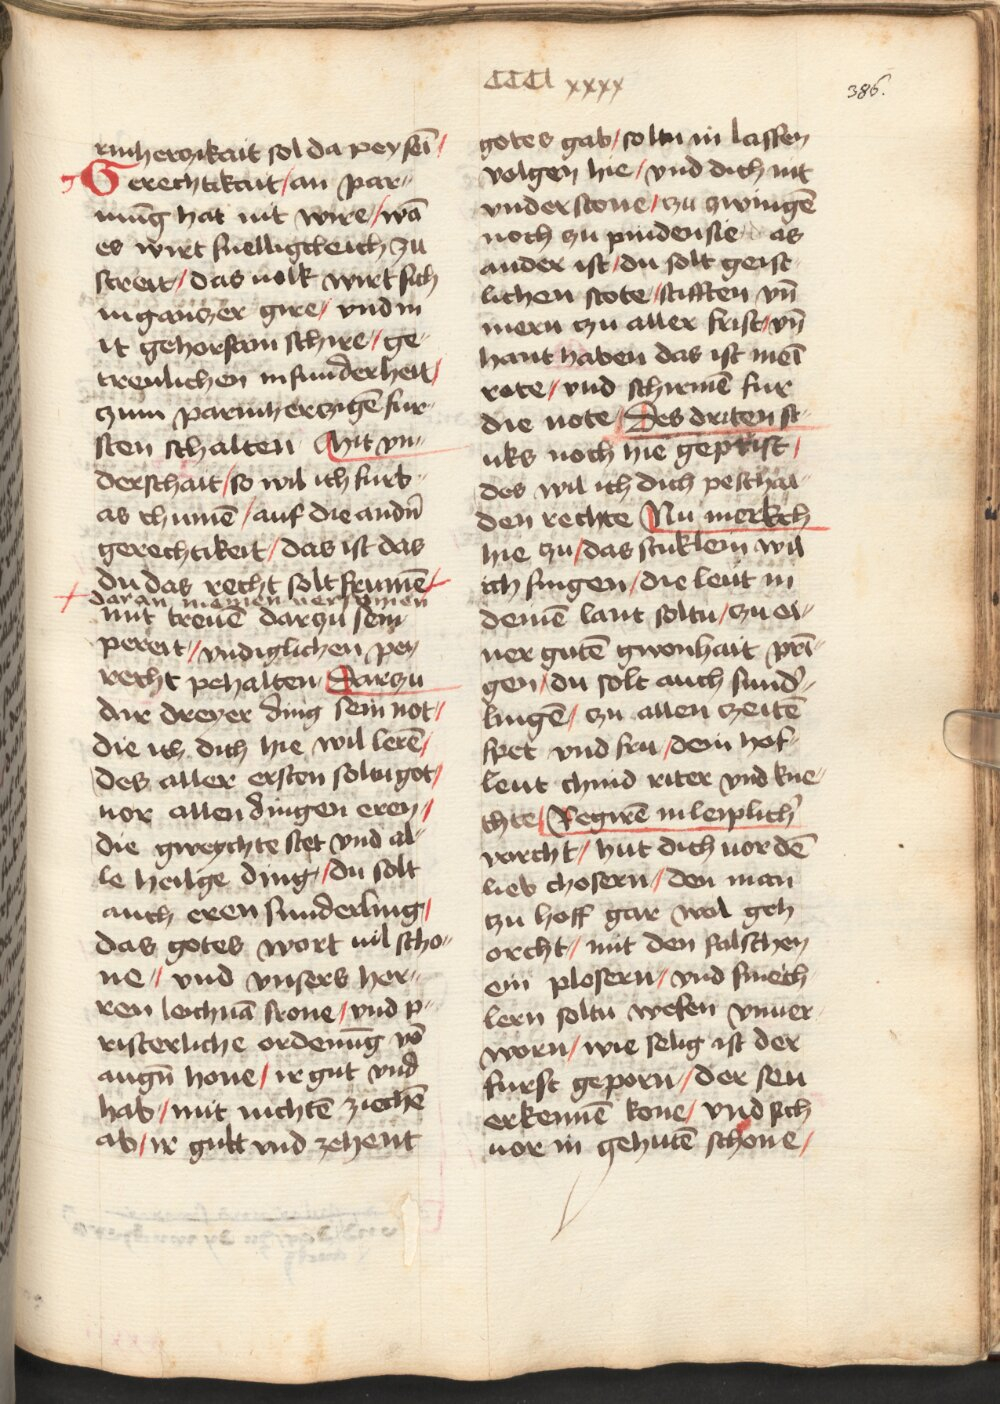 CCCl xxxx
386.
rmherczikait sol da pey sei͂/
Gerechtikait/an par-
mu͂g hat nit wire/wa͂
es wirt fuelligcleich zu
streit/das uolk wirt sich
in ganczer gire/vnd in
it gehorsam schire/ge-
treulichen in sunderheit/
zum parmherczige͂ fur-
sten schalten Mit vn-
derschait/so wil ich furb-
as chume͂/auf die andn̄
gerechtikeit/das ist das
du das recht solt frume͂/
daran niemen versaumen
mit treue͂ darzu sein
pereit/vndiglichen pey
recht pehalten Darzu
dir dreyer ding sein not/
die ich dich hie wil lere͂/
des aller ersten soltu got/
vor allen dingen eren/
die gweychte stet vnd al-
le heilge ding/du solt
auch eren sunderling/
das gotes wort uil scho-
ne/vnd vnsers her-
ren leichna͂ frone/vnd p-
risterliche ordenu͂g vo͂
augn̄ hone/ir gut vnd
hab/mit nichte͂ ziche͂
ab/ir gult vnd zehent
gotes gab/soltu in lassen
volgen hie/vnd dich nit
vnderstone/zu zwinge͂
noch zu pinden sie as
ander ist/du solt geist-
lichen stote/stifften vn̄
mern zu aller frist/vn̄
hant haben das ist mei͂
rote/vnd schirme͂ fur
die note/Des driten st-
uks noch hie geprist/
des wil ich dich peschai-
den rechte Nu merkch
hie zu/das stuklein wil
ich singen/die leut in
deine͂ lant soltu/zu ei-
ner gute͂ gwonhait pri͂-
gen/du solt auch sund̓-
linge͂/zu allen zeite͂
spet vnd fru/dein hof-
leut chind riter vnd kne-
chte/Regire͂ in leiplich̓
vorcht/hut dich uor de͂
lieb chosern/den man
zu hoff gar wol geh
orcht/mit den falschen
ein plosern/vnd smech-
lern soltu wesen vnuer-
worn/wie selig ist der
furst geporn/der seu
erkenne͂ kone/vnd sich
uor in gehute͂ schone/